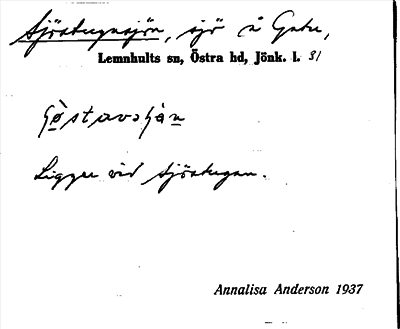 Sjöstugusjön, sjö å Gata,
Lemnhults sn, Östra hd, Jönk. l. 31
Ligger vid Sjöstugan.
Annalisa Anderson 1937